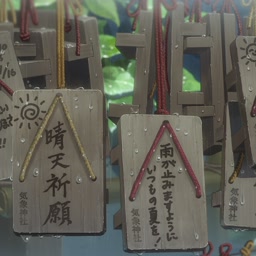 晴天祈願
気象神社
雨が止みますように
いつもの夏を!
気象神社
気象神社